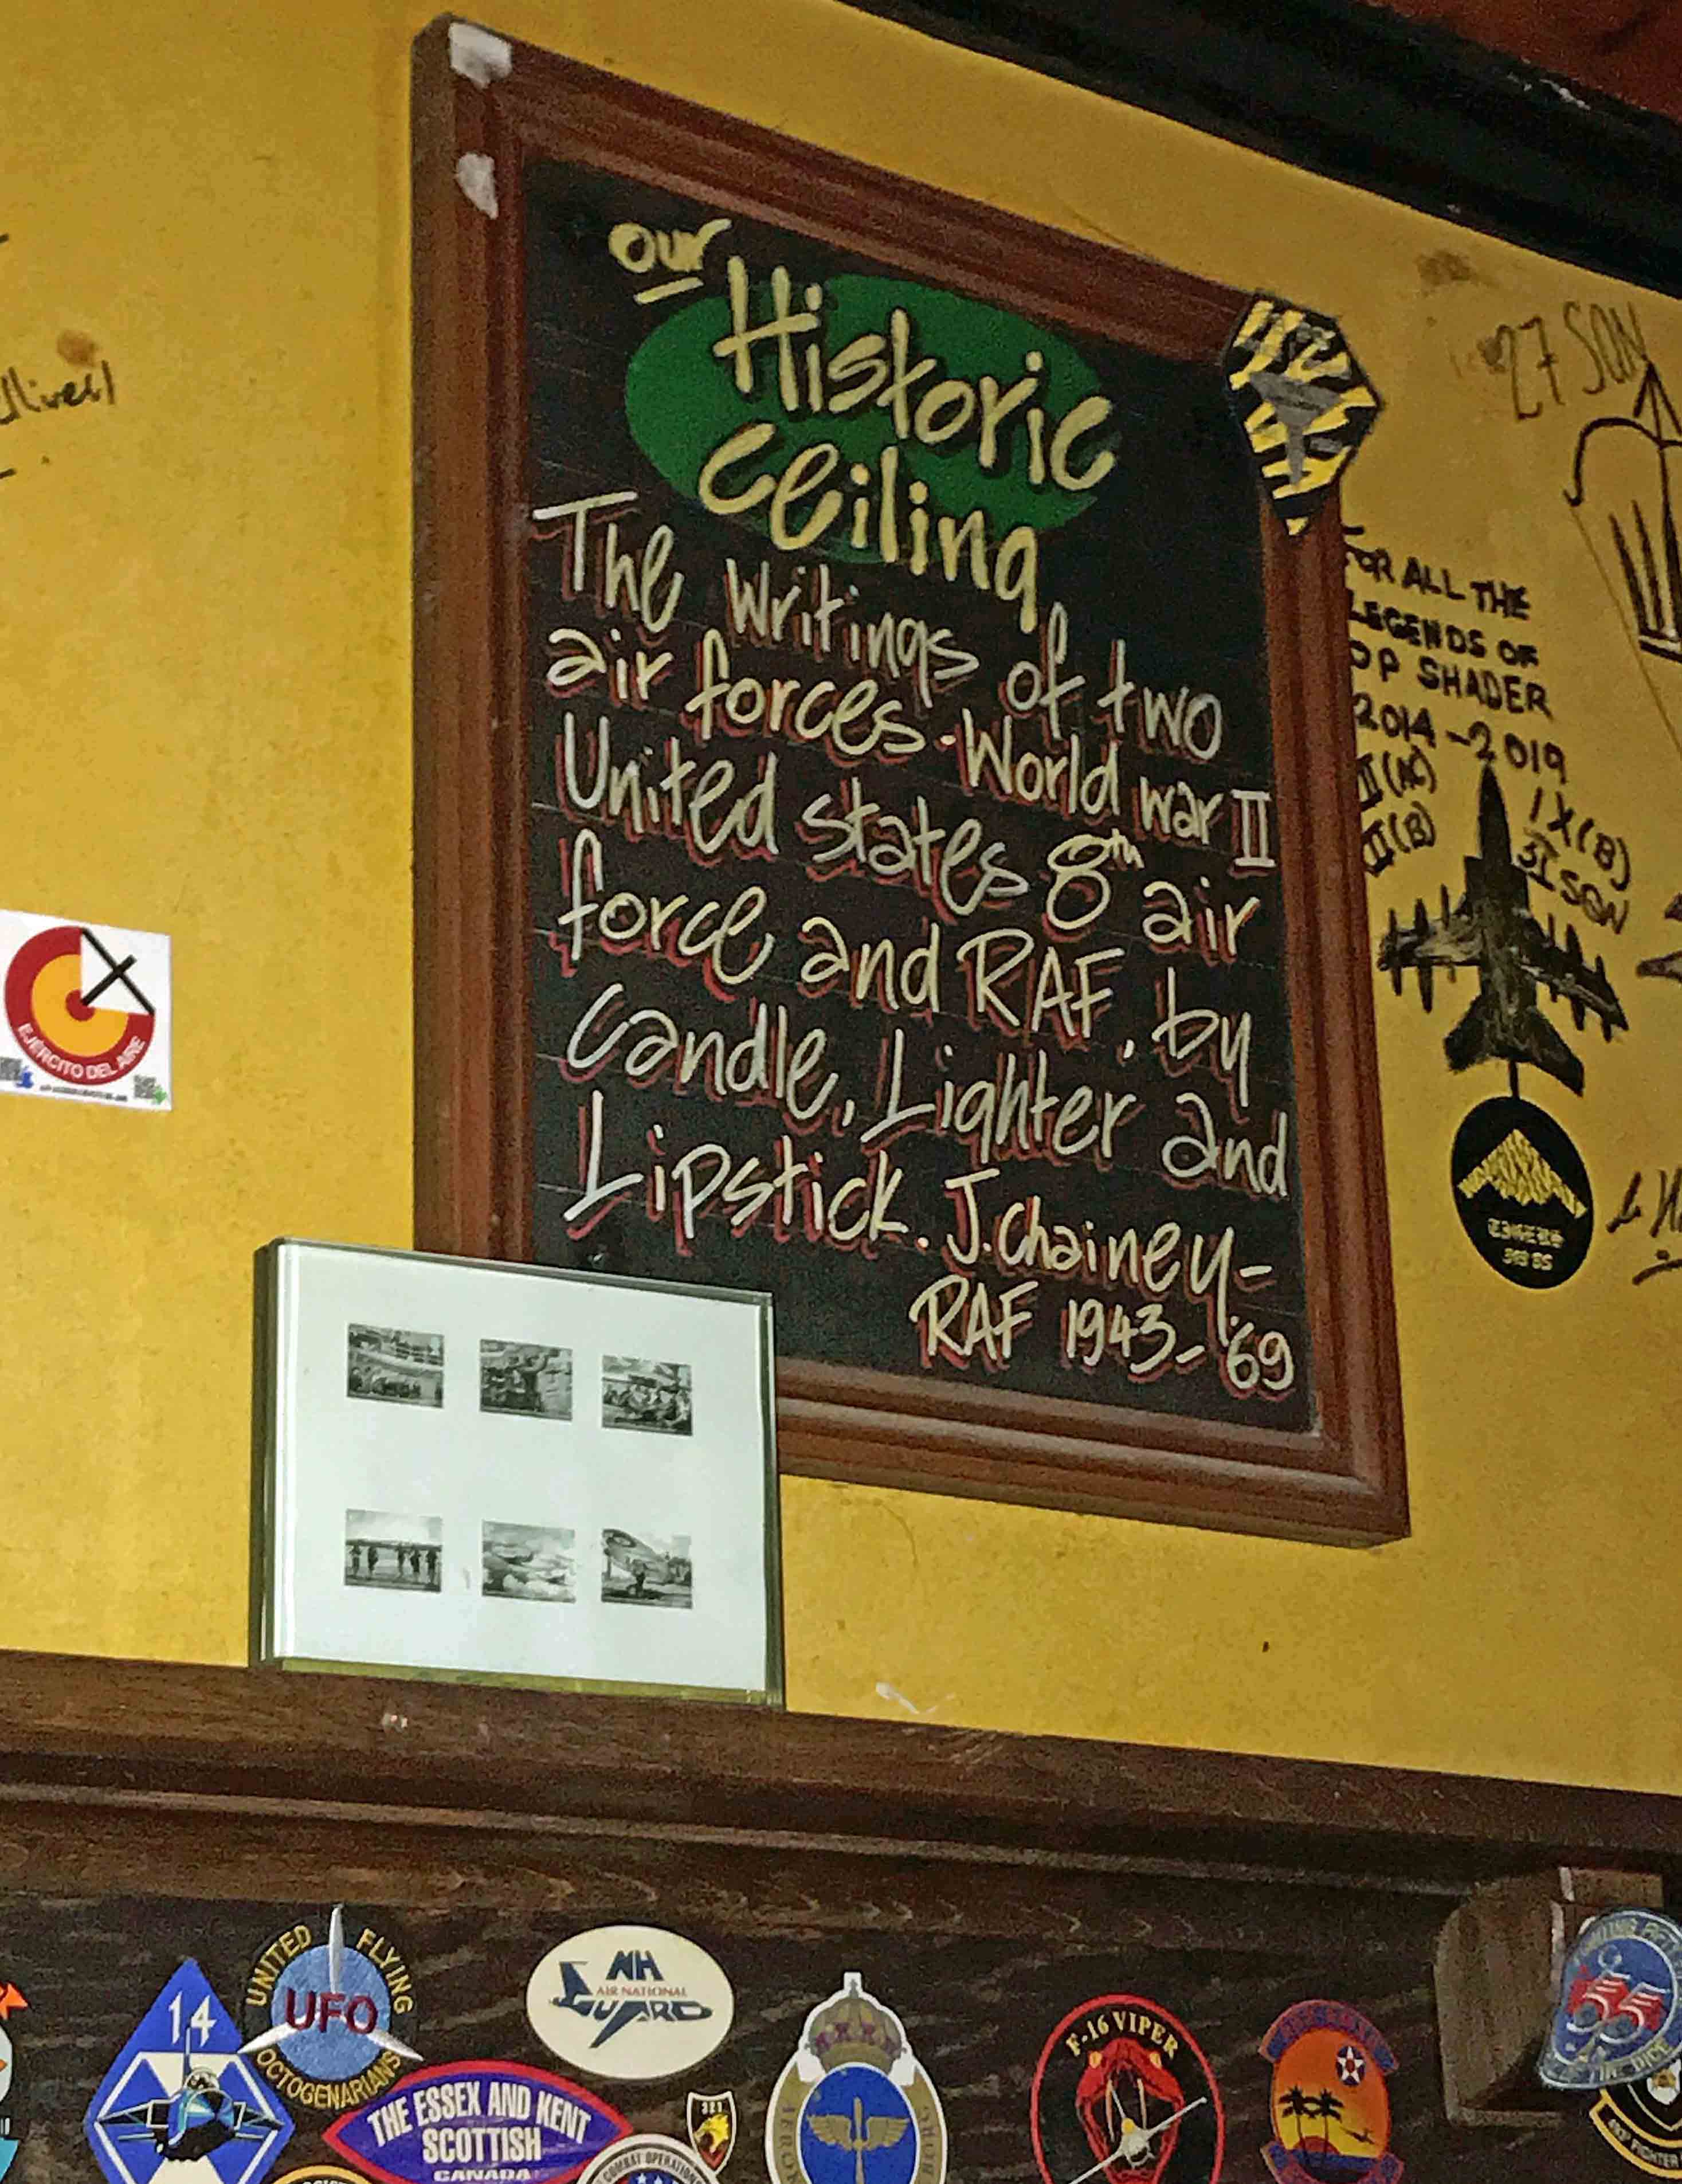 our
Historic
Ceiling
The Writings of two
air forces. World war II
United States 8th air
force and RAF, by
Candle, Lighter and
Lipstick. J. Chainey-
RAF 1943-'69
27 SQN
FOR ALL THE
LEGENDS OF
OP SHADER
2014-2019
II (AC)
IX (B)
31 SQN
EJÉRCITO DEL AIRE
14
UNITED FLYING
UFO
OCTOGENARIANS
NH
AIR NATIONAL
GUARD
THE ESSEX AND KENT
SCOTTISH
CANADA
COMBAT OPERATIONS
F-16 VIPER